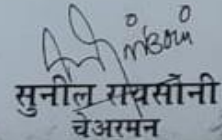 सुनील रायसोनी
चेअरमन